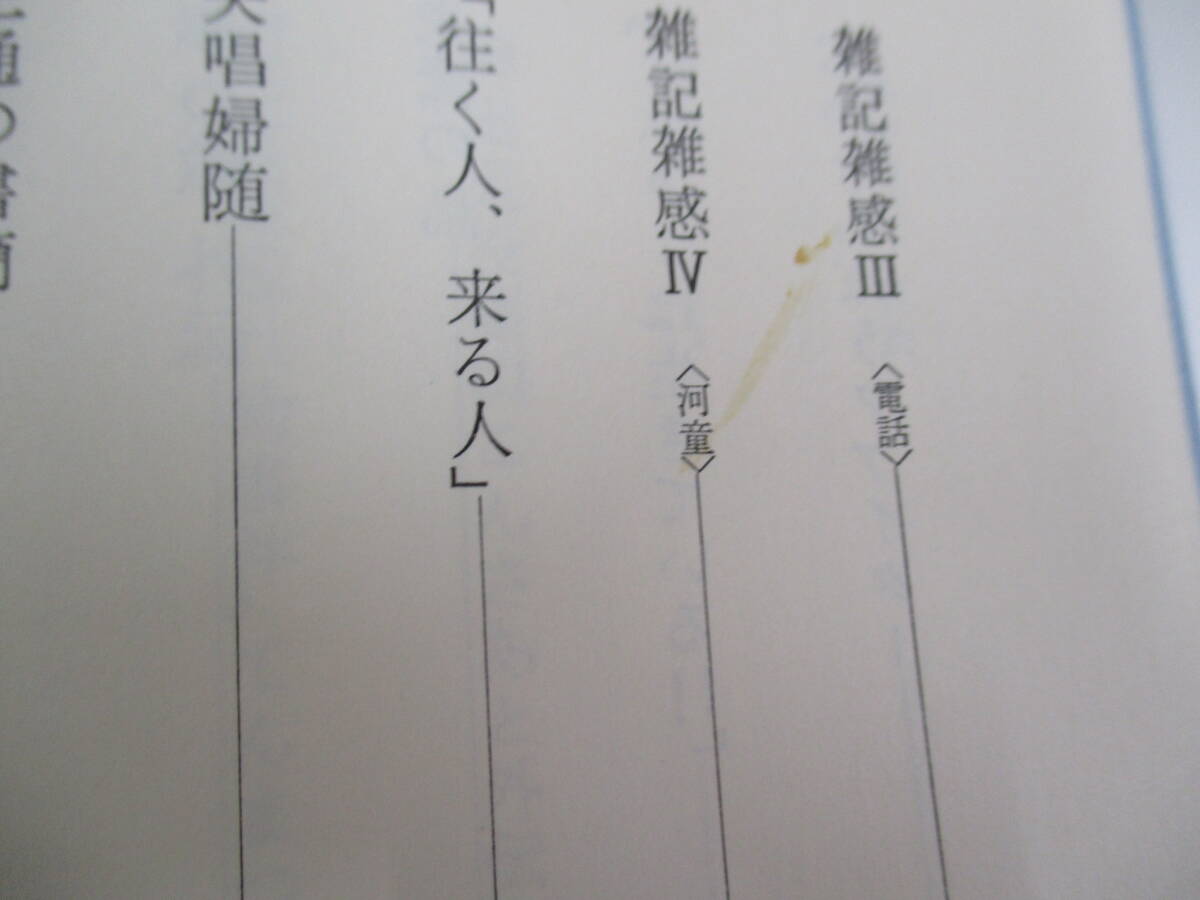 雑記雑感Ⅲ〈電話〉
雑記雑感Ⅳ〈河童〉
「往く人、来る人」
夫唱婦随
通の書簡